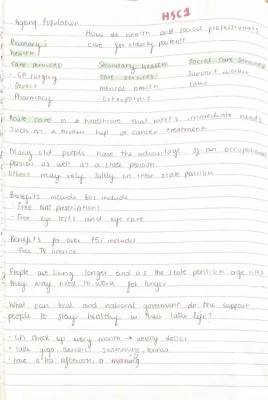 HSC1
Ageing Population
How do health and social professionals
care for elderly patients
Primary
health
care services
Secondary health
care services
Social care services
- GP surgery
Support worker
- Dentist
mental health
carer
- Pharmacy
Acute care is a healthcare that meets immediate needs
such as a broken hip or cancer treatment
Many old people have the advantage of an occupational
pension as well as a state pension.
Others may rely solely on their state pension
Benefits include 60s include
- Free NHS prescriptions
- Free eye tests and eye care
Benefits for over 75s includes
- Free TV licence
People are living longer and as the state pension age rises
they may need to work for longer
What can local and national government do to support
people to stay healthy in their later life?
check up every month → weekly
yoga, swimming,
- have a tea afternoon, or morning